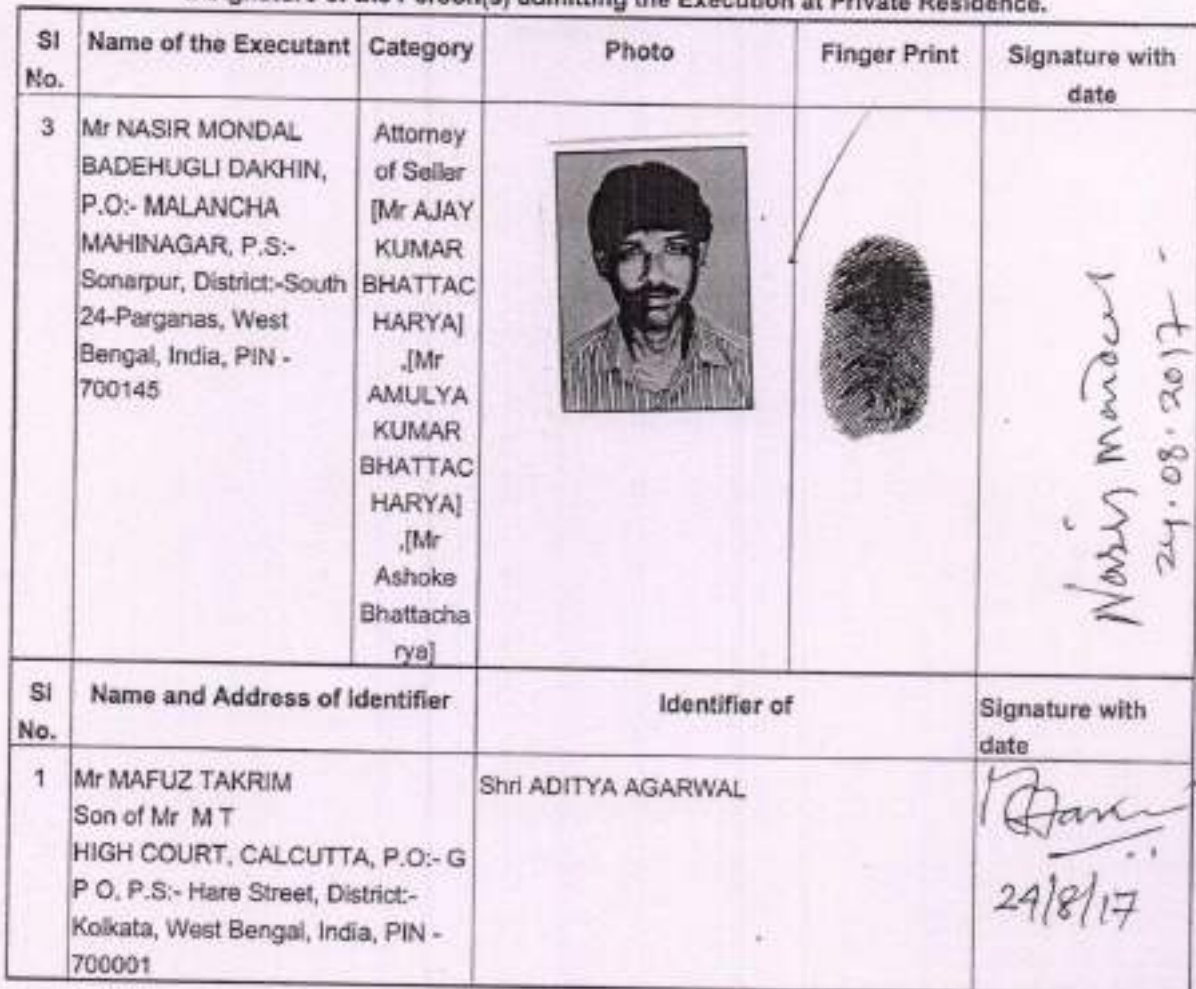 the Person(s) admitting the Execution at Private Residence.
Sl No. Name of the Executant Category Photo Finger Print Signature with date
3
Mr NASIR MONDAL
BADEHUGLI DAKHIN,
P.O:- MALANCHA
MAHINAGAR, P.S:-
Sonarpur, District:-South
24-Parganas, West
Bengal, India, PIN -
700145
Attorney
of Seller
[Mr AJAY
KUMAR
BHATTAC
HARYA]
,[Mr
AMULYA
KUMAR
BHATTAC
HARYA]
,[Mr
Ashoke
Bhattacha
rya]
Nasir Mondal
24.08.2017-
Sl No. Name and Address of Identifier Identifier of Signature with date
1
Mr MAFUZ TAKRIM
Son of Mr M T
HIGH COURT, CALCUTTA, P.O:- G
P O, P.S:- Hare Street, District:-
Kolkata, West Bengal, India, PIN -
700001
Shri ADITYA AGARWAL
24/8/17